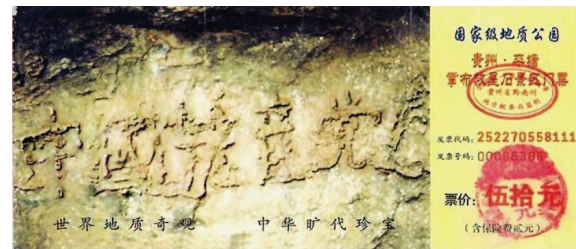 中國共产党亡
世界地质奇观 中华旷代珍宝
国家级地质公园
贵州·平塘
掌布 景区门票
贵州省黔南州
地方税务局监制
发票代码: 252270558111
发票号码: 00006306
票价: 伍拾元
(含保险费贰元)